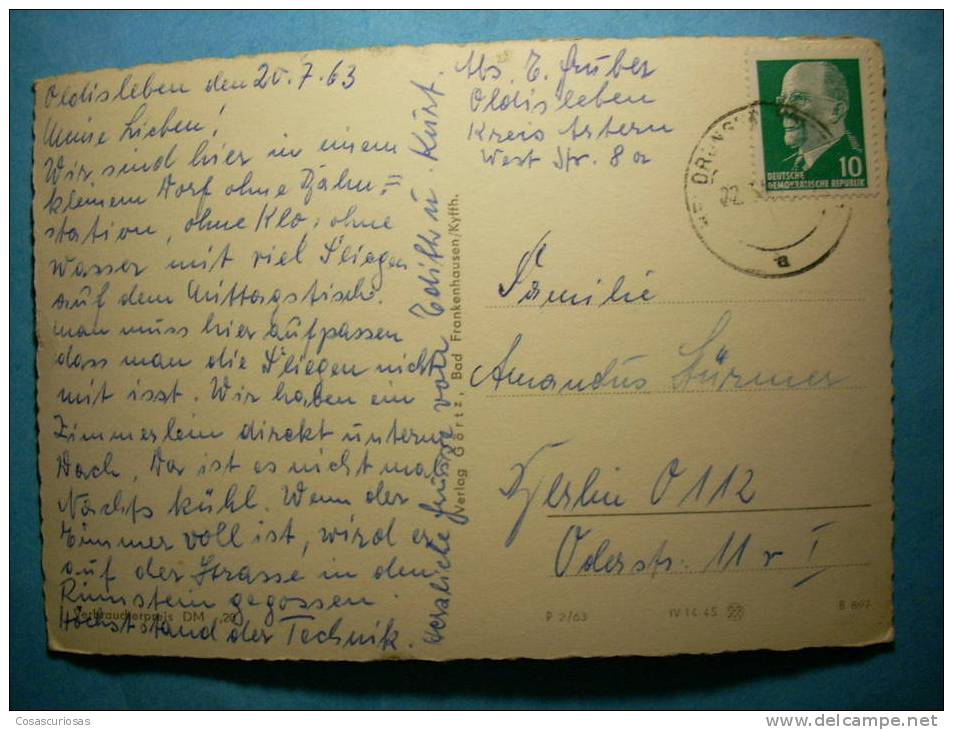 Oldisleben den 20.7.63
Meine Lieben!
Wir sind hier in einem
kleinem Dorf ohne Bahn=
station, ohne Klo, ohne
Wasser mit viel Fliegen
auf dem Mittagstisch.
man muss hier aufpassen
dass man die Fliegen nicht
mit isst. Wir haben ein
Zimmerlein direkt unterm
Dach, Da ist es nicht mal
Nachts kühl. Wenn der
Eimmer voll ist, wird er
auf der Strasse in den
Rinnstein gegossen.
Höchststand der Technik.
Verbraucherpreis DM ,20
Herzliche Grüsse von Edith u. Kurt.
Verlag Görtz, Bad Frankenhausen/Kyffh.
Abs. E. Gruber
Oldisleben
Kreis Artern
West Str. 8a
10
DEUTSCHE
DEMOKRATISCHE REPUBLIK
22.
a
Familie
Amandus Stürmer
Berlin O 112
Oderstr. 11 v I
P 2/63 IV 14 45 B 897
Cosascuriosas
www.delcampe.net